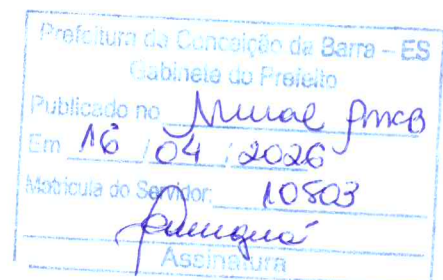 Prefeitura de Conceição da Barra – ES
Gabinete do Prefeito
Publicado no Mural PMCB
Em 16 / 04 / 2026
Matrícula do Servidor: 10803
Assinatura